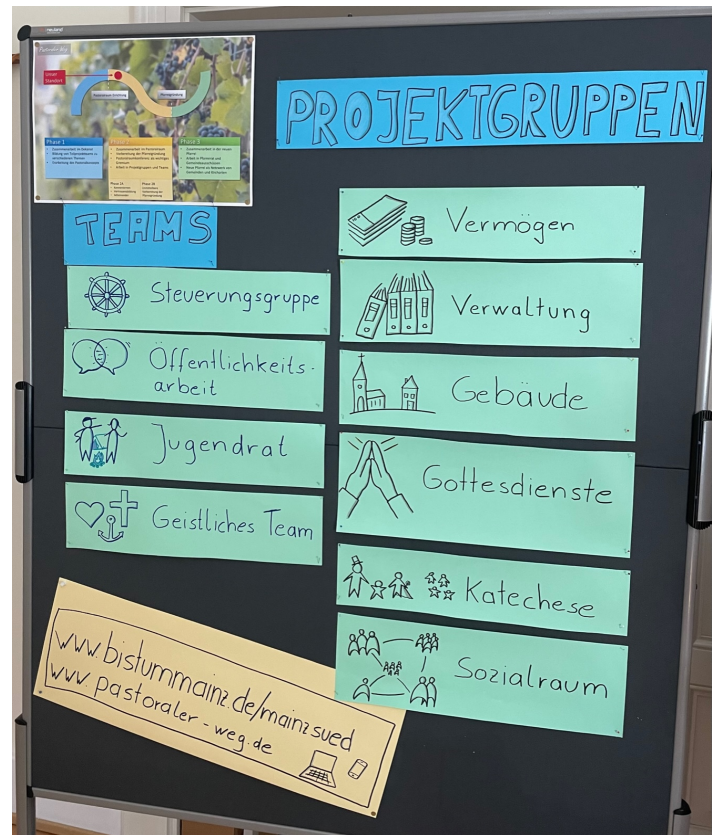 Pastoraler Weg
Unser
Standort
Pfarrgründung
Phase 1
Phase 3
Phase 2A
Phase 2B
PROJEKTGRUPPEN
TEAMS
Steuerungsgruppe
Öffentlichkeits-
arbeit
Jugendrat
Geistliches Team
Vermögen
Verwaltung
Gebäude
Gottesdienste
Katechese
Sozialraum
www.bistummainz.de/mainzsued
www.pastoraler-weg.de